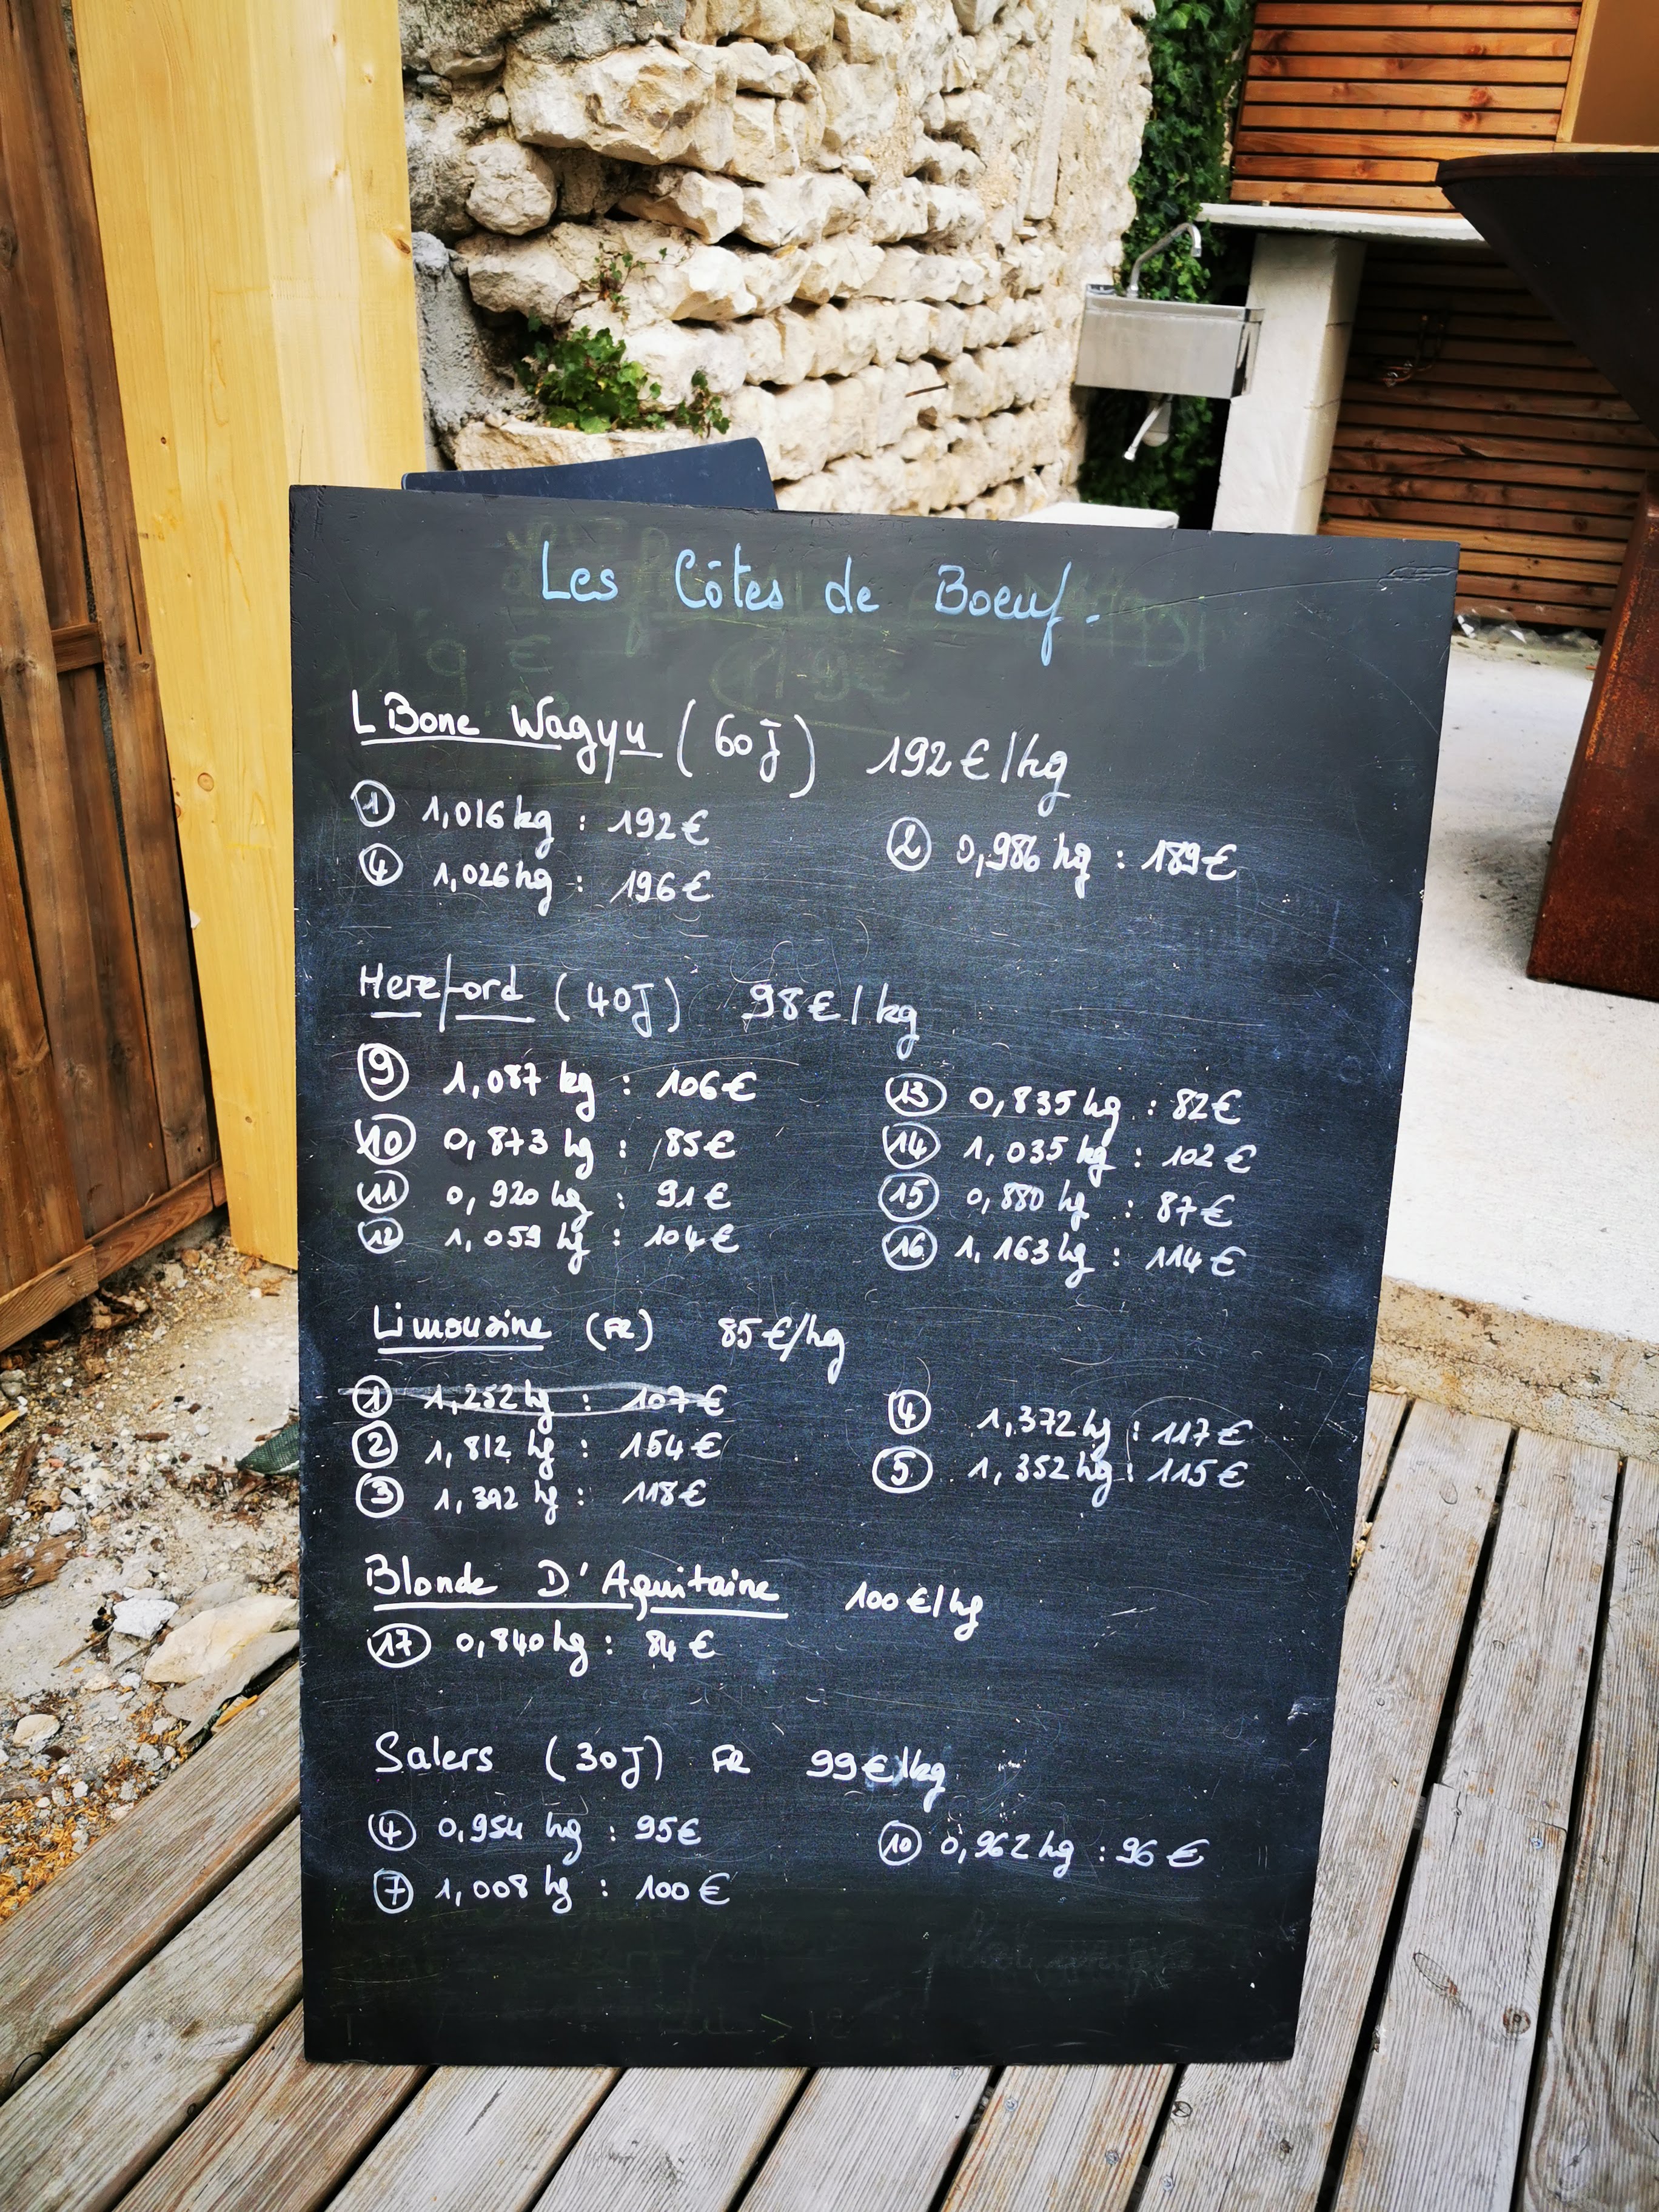 Les Côtes de Boeuf.
L Bone Wagyu (60J) 192€/kg
1 1,016 kg : 192€
2 0,986 kg : 189€
4 1,026 kg : 196€
Hereford (40J) 98€/kg
9 1,087 kg : 106€
13 0,835 kg : 82€
10 0,873 kg : 85€
14 1,035 kg : 102€
11 0,920 kg : 91€
15 0,880 kg : 87€
12 1,059 kg : 104€
16 1,163 kg : 114€
Limousine (FR) 85€/kg
1 1,252 kg : 107€
4 1,372 kg : 117€
2 1,812 kg : 154€
5 1,352 kg : 115€
3 1,392 kg : 118€
Blonde D'Aquitaine 100€/kg
17 0,840 kg : 84€
Salers (30J) FR 99€/kg
4 0,954 kg : 95€
10 0,962 kg : 96€
7 1,008 kg : 100€